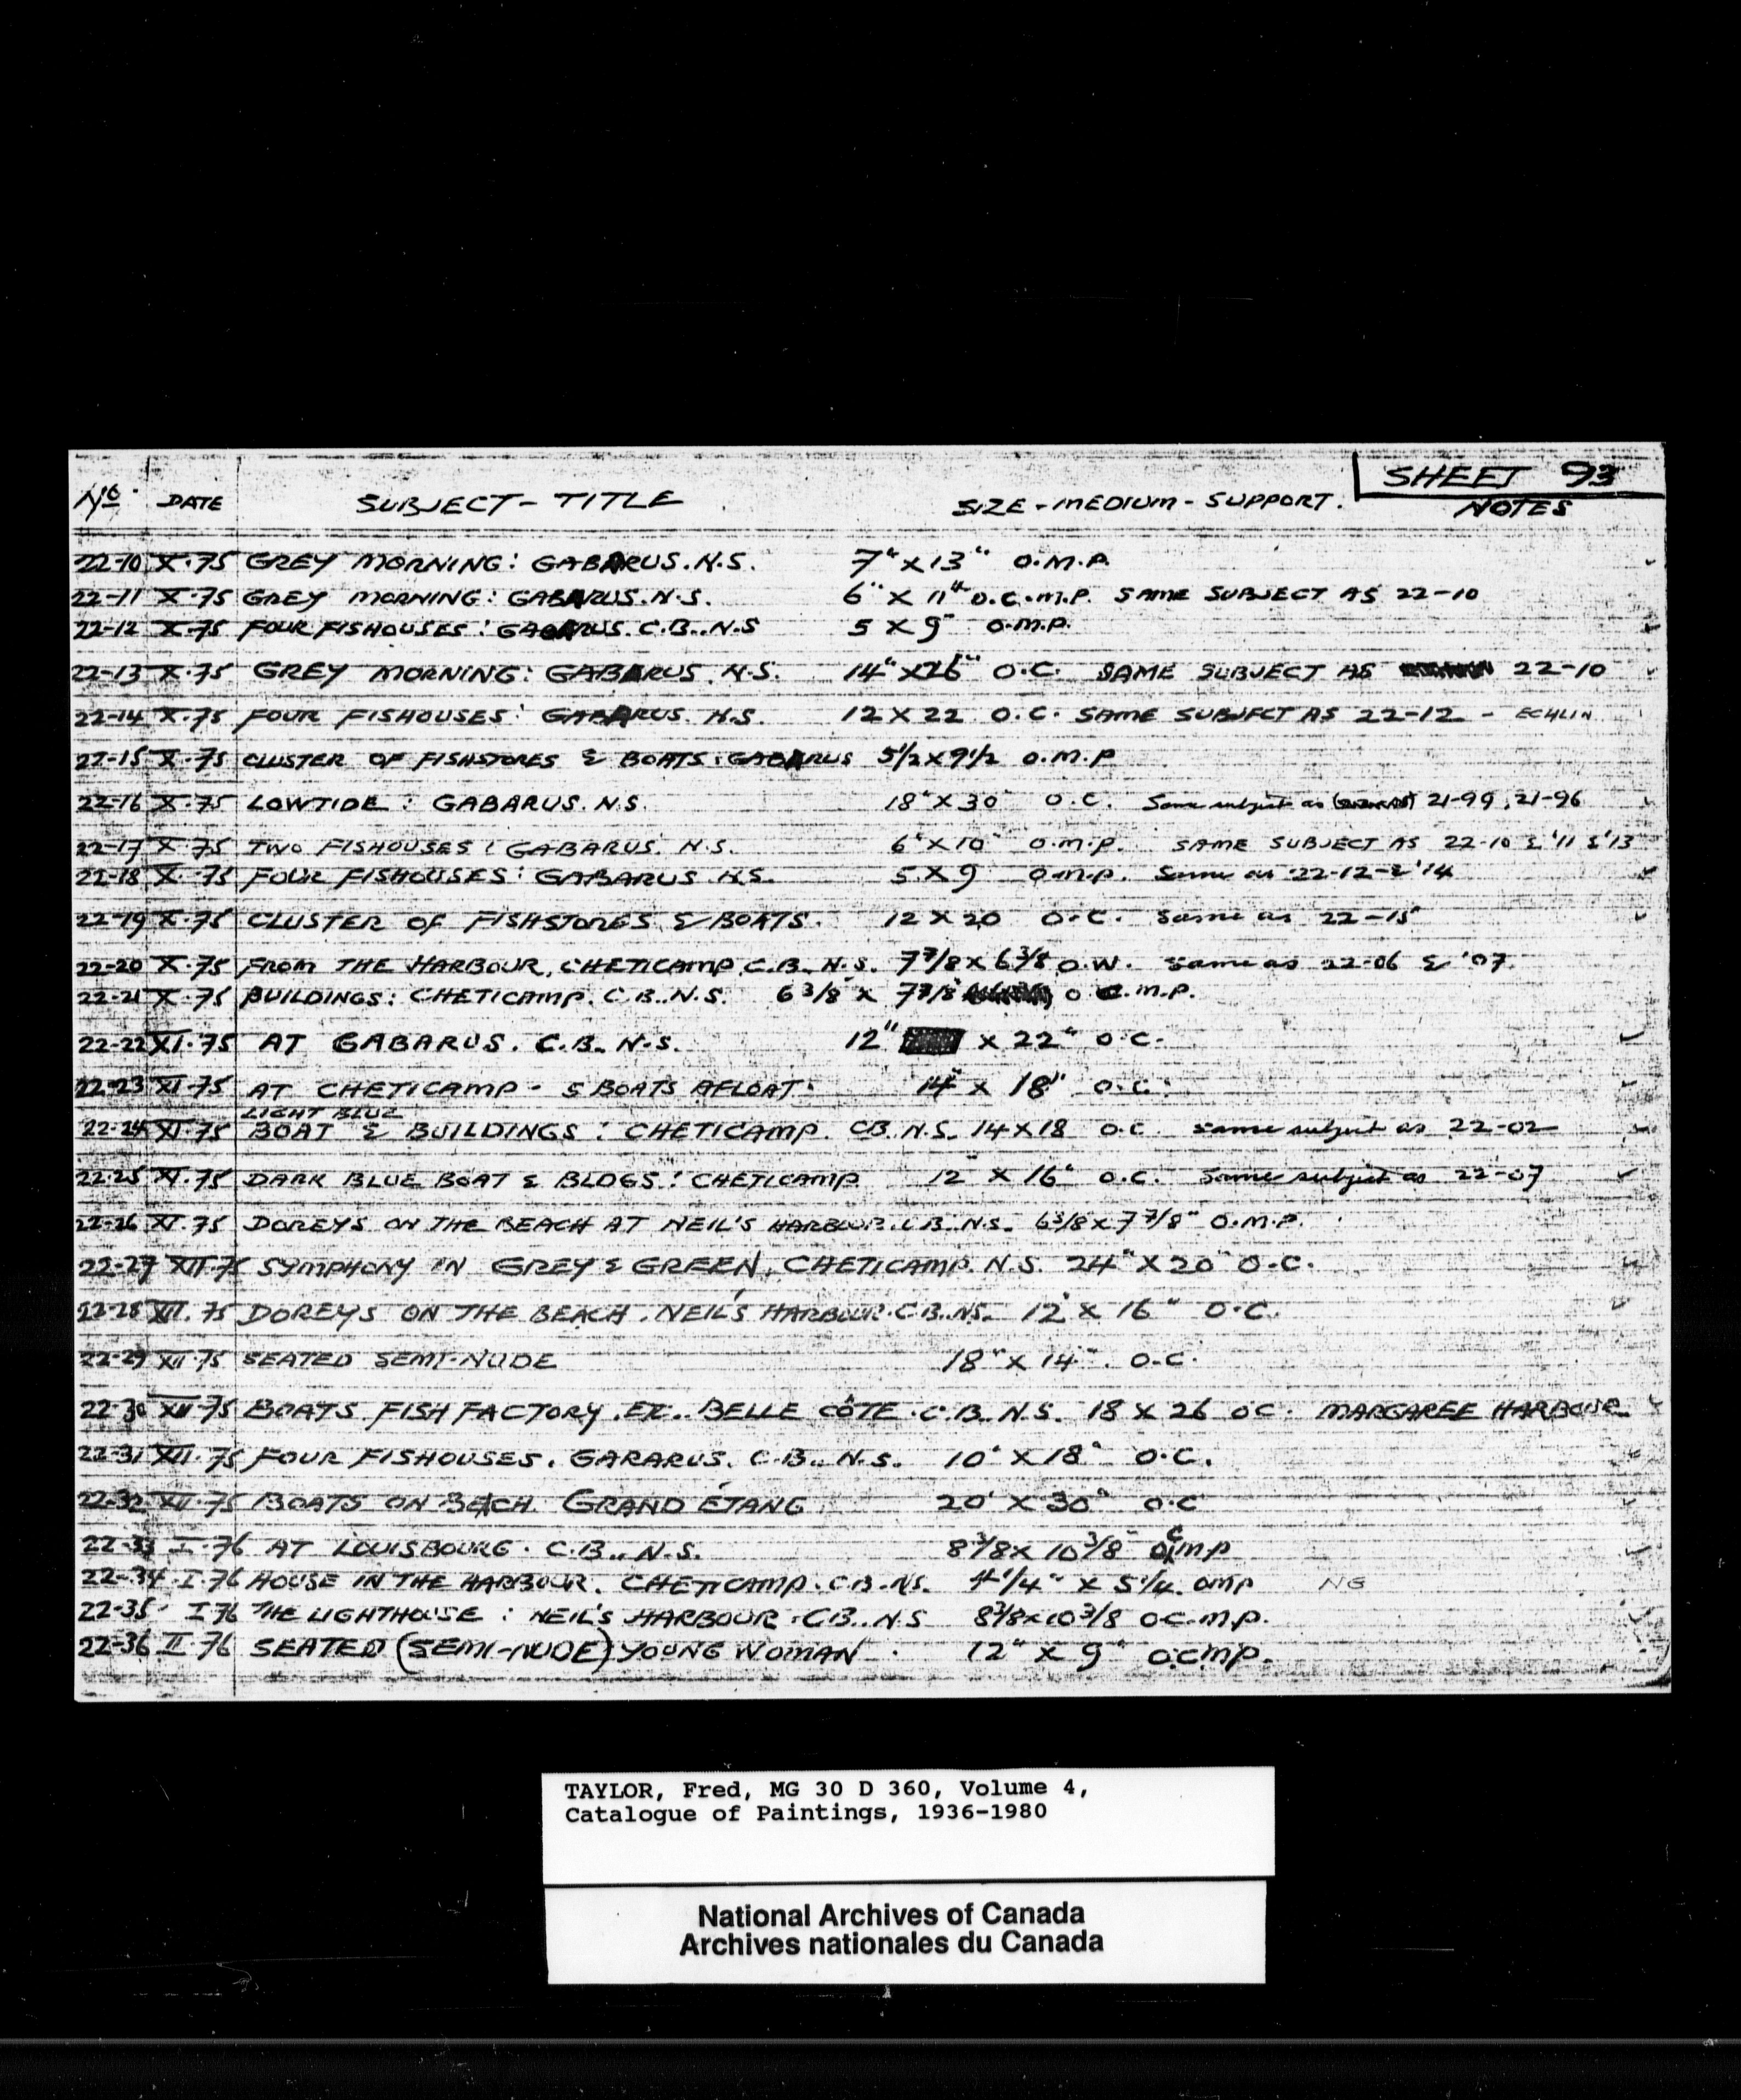 SHEET 93
No. DATE SUBJECT - TITLE SIZE - MEDIUM - SUPPORT. NOTES
22-10 X.75 GREY MORNING: GABARUS. N.S. 7" x 13" O.M.P.
22-11 X.75 GREY MORNING: GABARUS. N.S. 6" X 11" O.C.M.P. SAME SUBJECT AS 22-10
22-12 X.75 FOUR FISHOUSES: GABARUS. C.B.. N.S 5 X 9" O.M.P.
22-13 X.75 GREY MORNING: GABARUS. N.S. 14" X 26" O.C. SAME SUBJECT AS 22-10
22-14 X.75 FOUR FISHOUSES: GABARUS. N.S. 12 X 22 O.C. SAME SUBJECT AS 22-12 - ECHLIN
22-15 X.75 CLUSTER OF FISHSTORES & BOATS: GABARUS 5 1/2 X 9 1/2 O.M.P
22-16 X.75 LOWTIDE: GABARUS. N.S. 18" X 30" O.C. Same subject as 21-99, 21-96
22-17 X.75 TWO FISHOUSES: GABARUS. N.S. 6" X 10" O.M.P. SAME SUBJECT AS 22-10 & '11 & '13
22-18 X.75 FOUR FISHOUSES: GABARUS. N.S. 5 X 9 O.M.P. Same as 22-12 & '14
22-19 X.75 CLUSTER OF FISHSTORES & BOATS. 12 X 20 O.C. Same as 22-15
22-20 X.75 FROM THE HARBOUR, CHETICAMP, C.B.. N.S. 7 7/8 X 6 3/8 O.W. Same as 22-06 & '07
22-21 X.75 BUILDINGS: CHETICAMP. C.B.. N.S. 6 3/8" x 7 7/8" O.C.M.P.
22-22 XI.75 AT GABARUS. C.B.. N.S. 12" x 22" O.C.
22-23 XI.75 AT CHETICAMP - 5 BOATS AFLOAT. 14" x 18" O.C.
LIGHT BLUE
22-24 XI.75 BOAT & BUILDINGS: CHETICAMP. CB. N.S. 14 X 18 O.C. Same subject as 22-02
22-25 XI.75 DARK BLUE BOAT & BLDGS: CHETICAMP 12" X 16" O.C. Same subject as 22-07
22-26 XI.75 DOREYS ON THE BEACH AT NEIL'S HARBOUR. C.B. N.S. 6 3/8 x 7 7/8" O.M.P.
22-27 XII.75 SYMPHONY IN GREY & GREEN, CHETICAMP. N.S. 24" X 20" O.C.
22-28 XII.75 DOREYS ON THE BEACH. NEIL'S HARBOUR. C.B.. N.S. 12" X 16" O.C.
22-29 XII.75 SEATED SEMI-NUDE 18" x 14". O.C.
22-30 XII.75 BOATS, FISH FACTORY, ETC.. BELLE CÔTE. C.B.. N.S. 18 X 26 OC. MARGAREE HARBOUR
22-31 XII.75 FOUR FISHOUSES. GARARUS. C.B.. N.S. 10" X 18" O.C.
22-32 XII.75 BOATS ON BEACH. GRAND ÉTANG 20" X 30" O.C
22-33 I.76 AT LOUISBOURG. C.B.. N.S. 8 3/8 x 10 3/8" OCMP
22-34 I.76 HOUSE IN THE HARBOUR. CHETICAMP. C.B. NS. 4 1/4" X 5 1/4. OMP NG
22-35 I 76 THE LIGHTHOUSE: NEIL'S HARBOUR. C.B.. N.S 8 3/8 x 10 3/8 O.C.M.P.
22-36 II.76 SEATED (SEMI-NUDE) YOUNG WOMAN. 12" X 9" OCMP.
TAYLOR, Fred, MG 30 D 360, Volume 4,
Catalogue of Paintings, 1936-1980
National Archives of Canada
Archives nationales du Canada